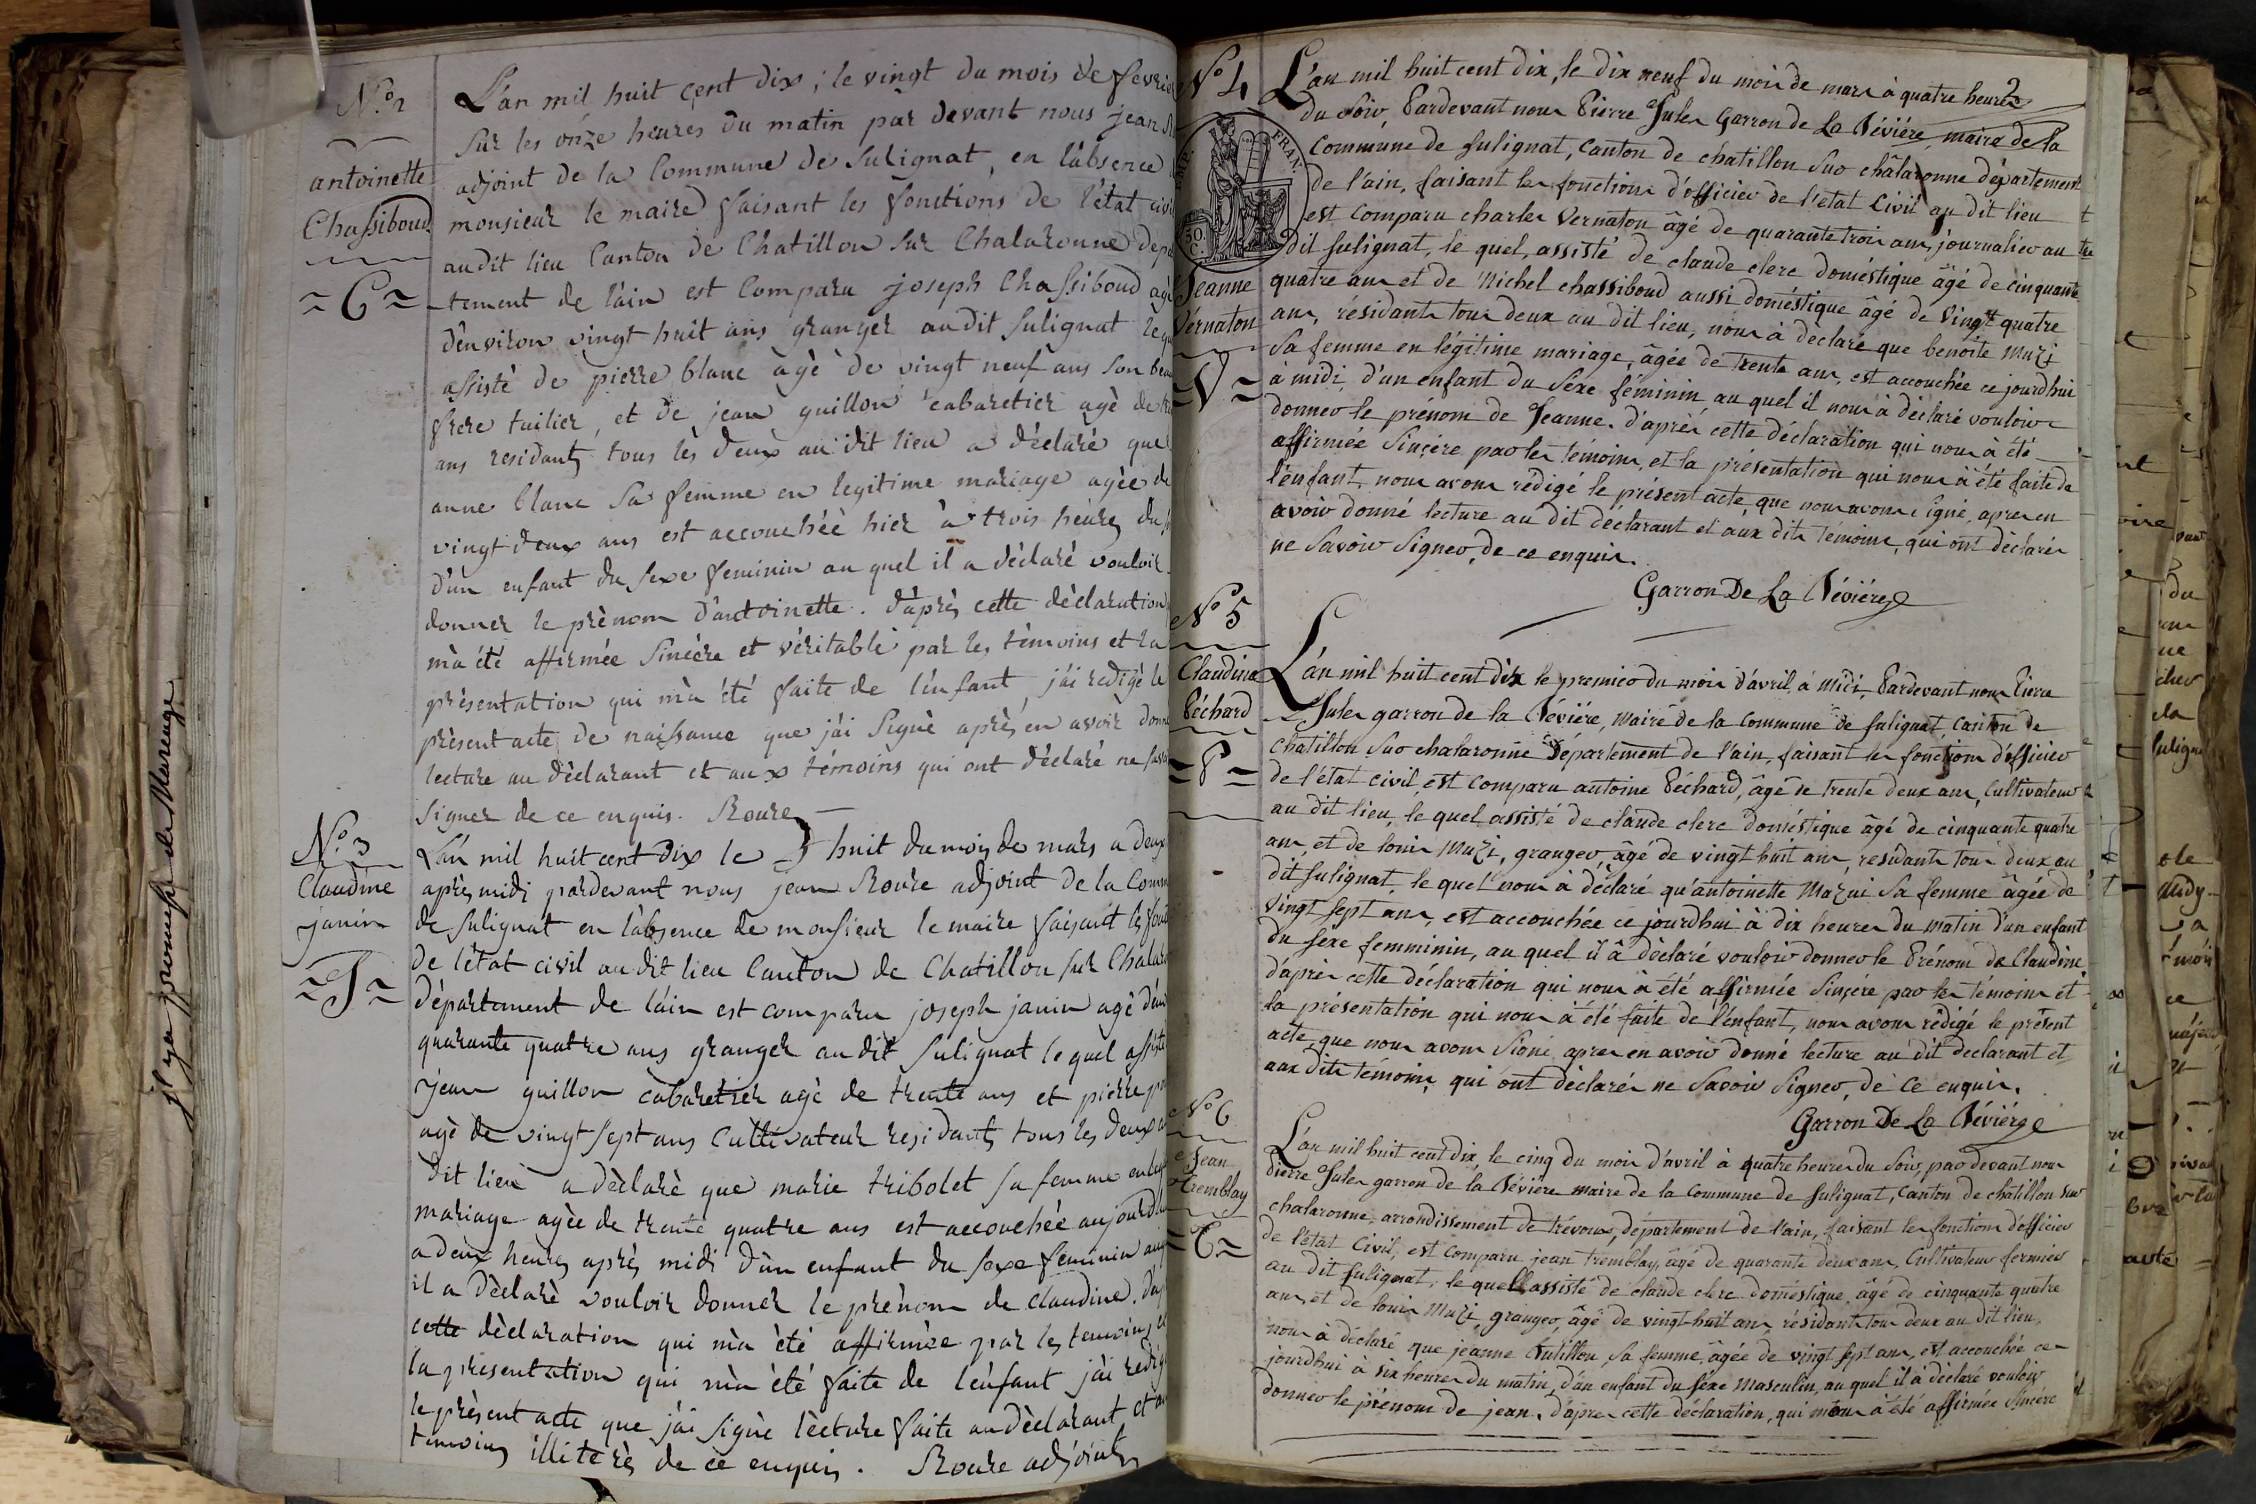 N.o 2
antoinette
Chassiboud
C
L'an mil huit cent dix ; le vingt du mois de fevrier
sur les onze heures du matin par devant nous jean
adjoint de la Commune de Sulignat, en l'absence
monsieur le maire faisant les fonctions de l'état civil
au dit lieu Canton de Chatillon sur Chalaronne dépa
tement de l'ain est Comparu joseph Chassiboud agé
d'environ vingt huit ans granger au dit Sulignat le qu
assisté de pierre blanc àgè de vingt neuf ans son beau
frere tuilier, et de jean guillon cabaretier agè de
ans residants tous lès deux au dit lieu a déclaré que
anne blanc sa femme en legitime mariage agèe de
vingt deux ans est accouchéè hier à trois hèures du
d'un enfant du sexe feminin au quel il a déclaré vouloir
donner le prènom d'antoinette. d'après cette dèclaration
m'a été affirmée sincère et vèritable par les tèmoins et la
présentation qui m'a été faite de l'enfant j'ai redigé le
prèsent acte de naissance que j'ai signè après en avoir donné
lecture au dèclarant et aux témoins qui ont déclaré ne
signer de ce enquis. Roure
N.o 3
Claudine
janin
J
L'an mil huit cent dix le huit du mois de mars a deux
après midi pardevant nous jean Roure adjoint de la Comm
de Sulignat en l'absence de monsieur le maire faisant les fonct
de l'état civil au dit lieu Canton de Chatillon sur Chalar
département de l'ain est comparu joseph janin agè d'env
quarante quatre ans granger au dit Sulignat le quel assisté
jean guillon cabaretier agè de trente ans et pierre
agè de vingt sept ans Cultivateur residants tous les deux au
dit lieu a dèclarè que marie tribolet sa femme en leg
mariage agèe de trente quatre ans est accouchée aujourdhui
a deux heures après midi d'un enfant du sexe feminin auq
il a dèclarè vouloir donner le prènom de claudine. d'ap
cette dèclaration qui m'a été affirmèe par les temoins et
la presentation qui m'a été faite de l'enfant j'ai redigé
le prèsent acte que j'ai signè lècture faite au dèclarant et au
témoins illiterès de ce enquis. Roure adjoint
j'l y a promesse de Mareage
2
N.o 4
EMP. FRAN.
30. C.
Jeanne
Vernaton
V
L'an mil huit cent dix, le dix neuf du mois de mars à quatre heures
du soir, Pardevant nous Pierre Jules Garron de La Bévière, maire de la
Commune de Sulignat, Canton de chatillon sur châlaronne département
de l'ain, faisant les fonctions d'officier de l'état Civil au dit lieu
est Comparu charles Vernaton âgé de quarante trois ans, journalier au
dit Sulignat, le quel, assisté de claude clerc doméstique âgé de cinquante
quatre ans et de Michel chassiboud aussi doméstique âgé de Vingt quatre
ans, résidants tous deux au dit lieu, nous à déclaré que benoîte Muzi
sa femme en légitime mariage, âgée de trente ans, est accouchée ce jourdhui
à midi, d'un enfant du sexe féminin au quel il nous à déclaré vouloir
donner le prénom de Jeanne. d'après cette déclaration qui nous à été
affirmée Sincère par les témoins, et la présentation qui nous à été faite de
l'enfant, nous avons rédigé le présent acte, que nous avons signé, apres en
avoir donné lecture au dit déclarant et aux dits témoins, qui ont déclarés
ne savoir signer, de ce enquis.
Garron De La Bévière
N.o 5
Claudine
Péchard
P
L'an mil huit cent dix le premier du mois d'avril, à midi, Pardevant nous Pierre
Jules garron de la Bévière, Maire de la Commune de Sulignat, Canton de
chatillon sur chalaronne Département de l'ain, faisant les fonctions d'officier
de l'état civil, est Comparu antoine Péchard, âgé de trente deux ans, Cultivateur
au dit lieu, le quel assisté de claude clerc doméstique âgé de cinquante quatre
ans, et de louis Muzi, granger, âgé de vingt huit ans, résidants tous deux au
dit Sulignat, le quel nous à déclaré qu'antoinette Mazui sa femme âgée de
vingt sept ans, est accouchée ce jourdhui à dix heures du matin d'un enfant
du séxe femminin, au quel il à déclaré vouloir donner le Prénom de Claudine
d'après cette déclaration qui nous à été affirmée Sincère par les temoins et
la présentation qui nous à été faite de l'enfant, nous avons rédigé le présent
acte, que nous avons signé apres en avoir donné lecture au dit declarant et
aux dits témoins, qui ont déclarés ne savoir signer, de ce enquis.
Garron De La Bévière
N.o 6
Jean
Tremblay
T
L'an mil huit cent dix, le cinq du mois d'avril à quatre heures du soir, par devant nous
Pierre Jules garron de la Bévière maire de la Commune de Sulignat, Canton de châtillon sur
chalaronne, arrondissement de trévoux, département de l'ain, faisant les fonctions d'officier
de l'état Civil, est comparu jean tremblay, âgé de quarante deux ans, Cultivateur fermier
au dit Sulignat, le quel assisté de claude clerc doméstique, âgé de cinquante quatre
ans, et de louis Muzi, granger, âgé de vingt huit ans, résidants tous deux au dit lieu,
nous à déclaré que jeanne sa femme, âgée de vingt sept ans, est accouchée ce
jourdhui à six heures du matin, d'un enfant du séxe Masculin, au quel il à déclaré vouloir
donner le prénom de jean, d'apres cette déclaration, qui nous à été affirmée Sincère